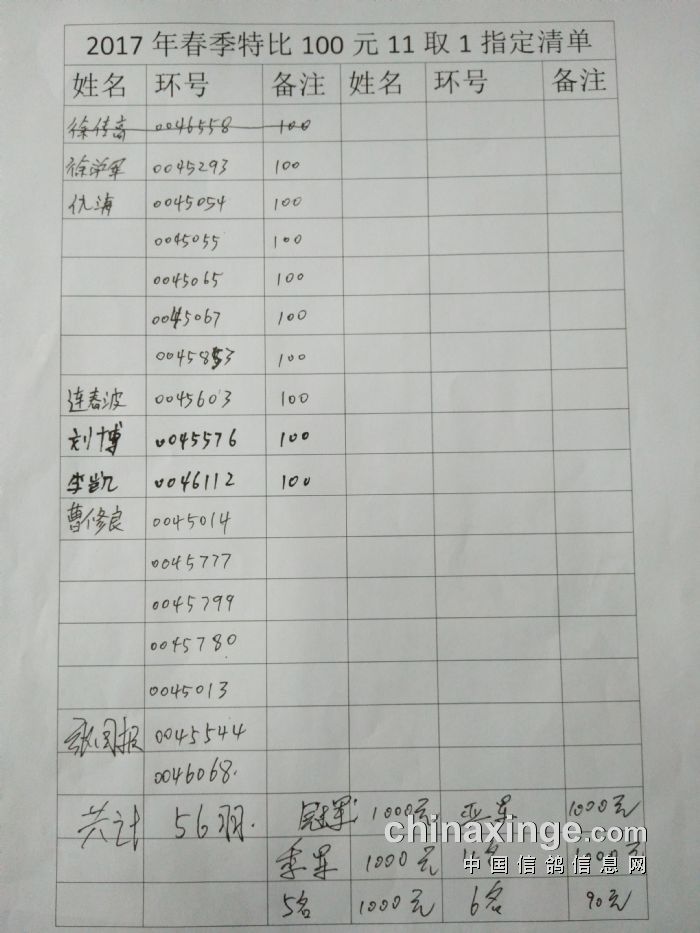 2017 年春季特比 100 元 11 取 1 指定清单
姓名 环号 备注 姓名 环号 备注
徐传高 0046558 100
徐洪军 0045293 100
仇海 0045054 100
0045055 100
0045065 100
0045067 100
0045853 100
连春波 0045603 100
刘博 0045576 100
李凯 0046112 100
曹修良 0045014
0045777
0045799
0045780
0045013
0045544
0046068.
共计 56羽. 冠军 1000元 亚军 1000元
季军 1000元 4名 1000元
5名 1000元 6名 90元
chinaxinge.com
中国信鸽信息网